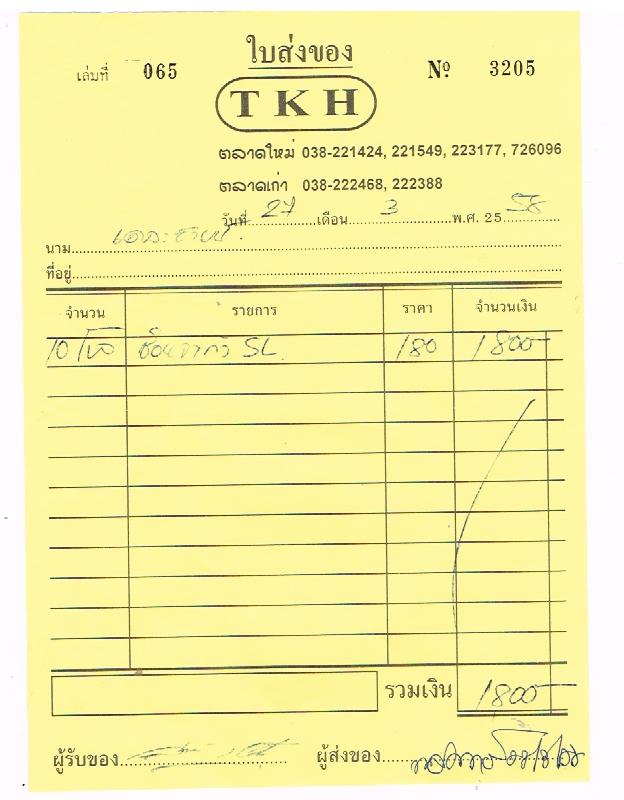 ใบส่งของ
เล่มที่ 065 Nº 3205
TKH
ตลาดใหม่ 038-221424, 221549, 223177, 726096
ตลาดเก่า 038-222468, 222388
วันที่ 27 เดือน 3 พ.ศ. 25 58
นาม
ที่อยู่
จำนวน รายการ ราคา จำนวนเงิน
10 โหล SL 180 1800-
รวมเงิน 1800-
ผู้รับของ ผู้ส่งของ